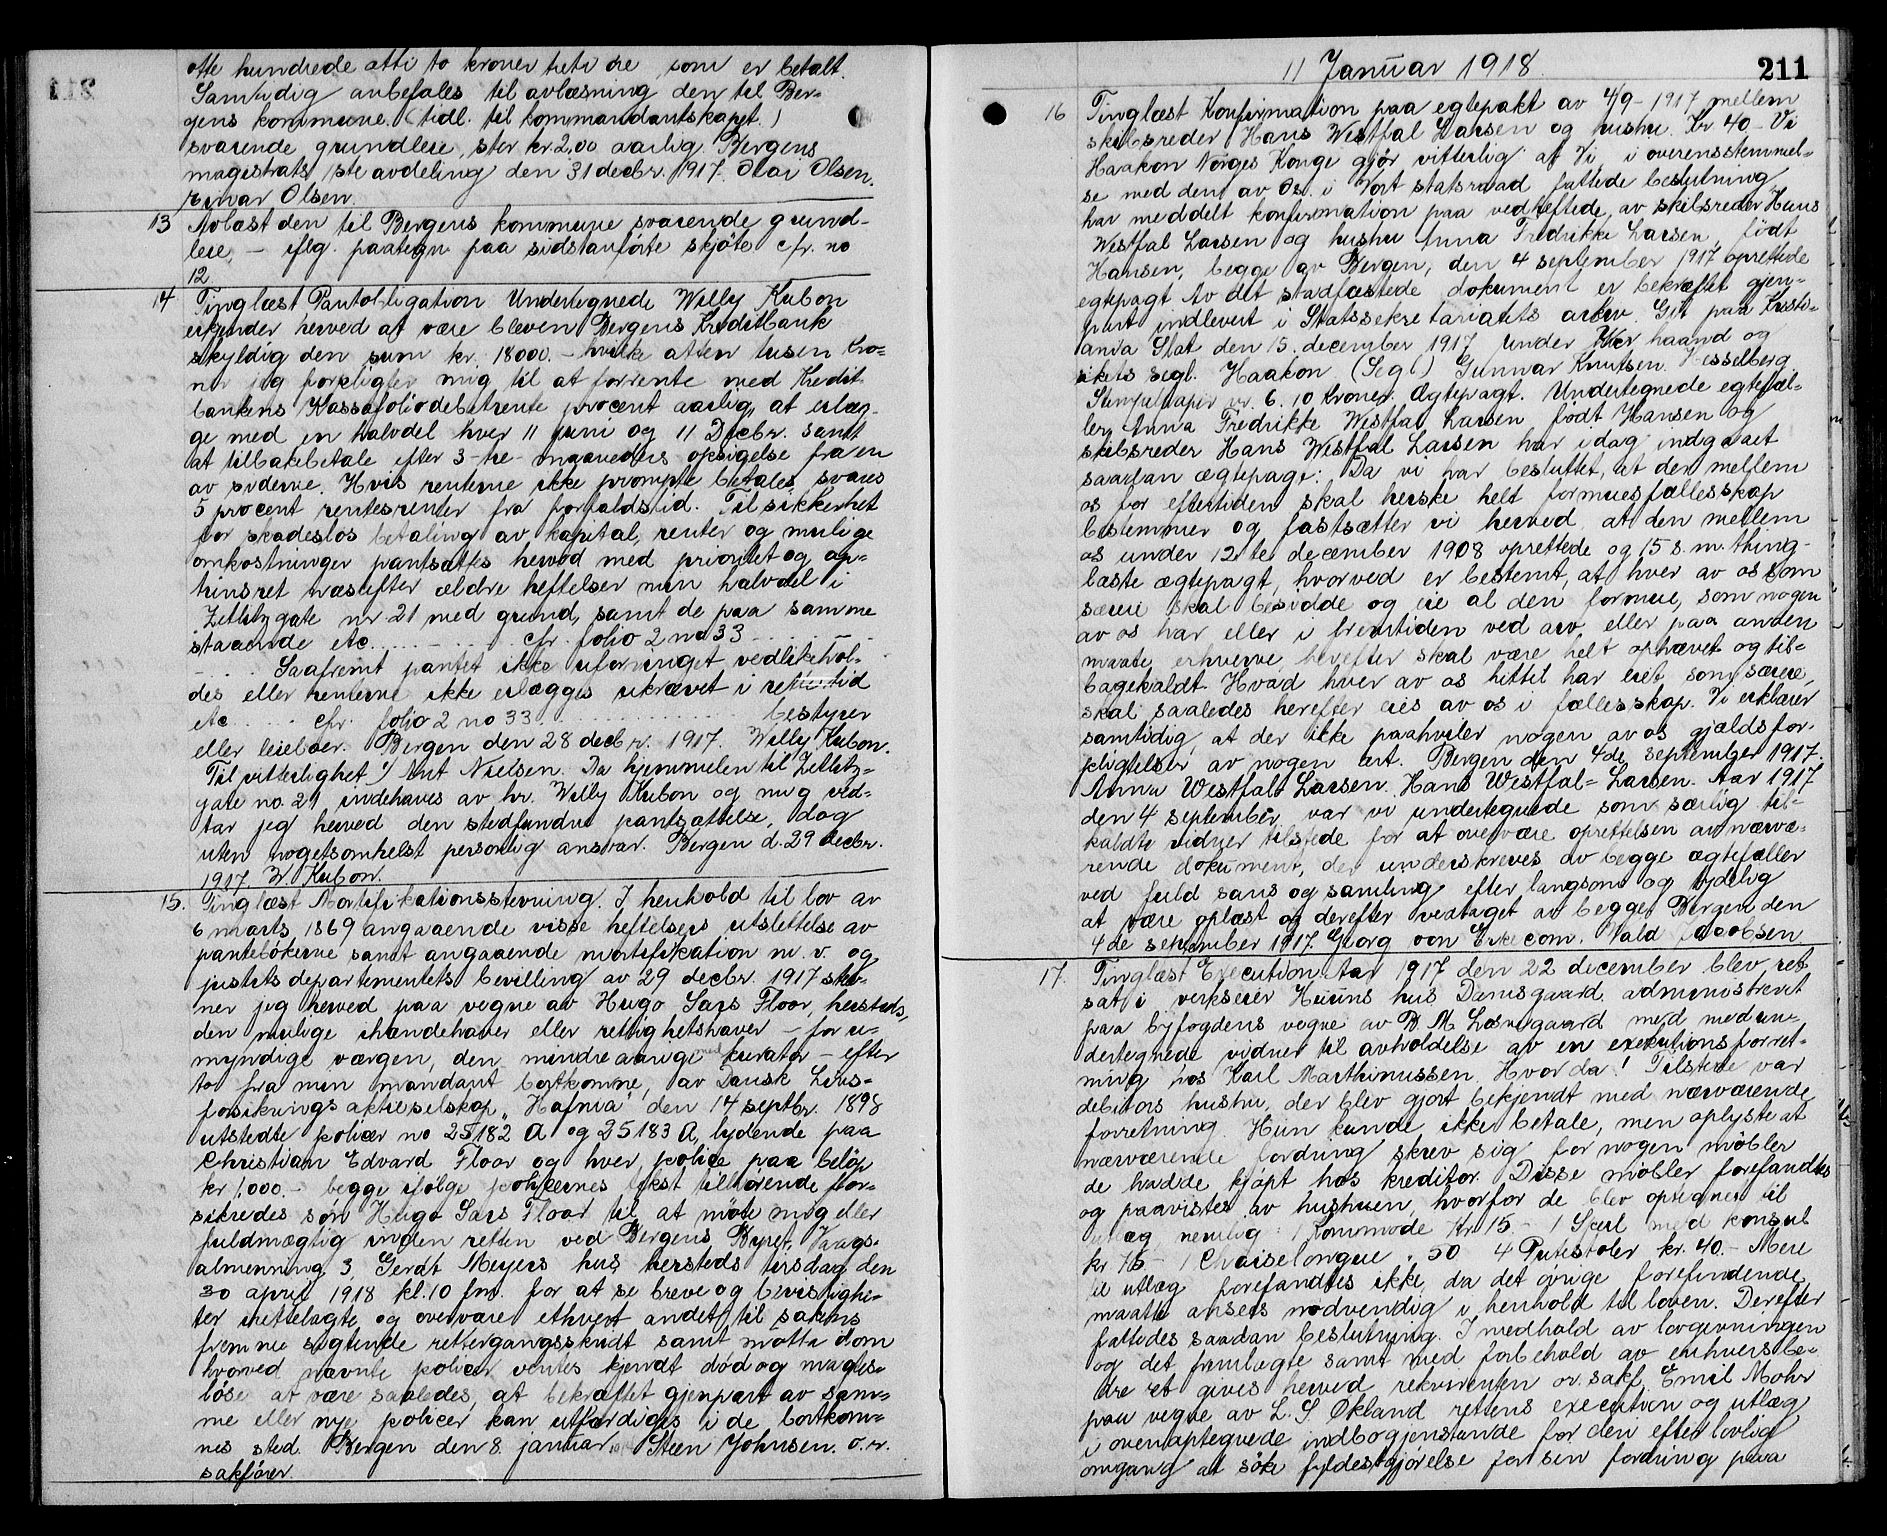 otte hundrede otti to kroner treti øre som er betalt.
Samtidig anbefales til avlæsning den til Ber-
gens kommune (tidl. til kommandantskapet)
svarende grundleie, stor kr 2,00 aarlig. Bergens
magistrats 1ste avdeling den 31 decbr. 1917. Olav Olsen.
Einar Olsen.
13 Avlæst den til Bergens kommune svarende grund-
leie, - iflg. paategn. paa sidstanførte skjøte cfr. no
12
14 Tinglæst Pantobligation Undertegnede Willy Kubon
erkjender herved at være bleven Bergens Kreditbank
skyldig den sum kr. 18000.- hvilke atten tusen kro-
ner jeg forpligter mig til at forrente med Kredit-
bankens Kassafoliodebetrente procent aarlig, at erlæg-
ge med en halvdel hver 11 juni og 11 Decbr. samt
at tilbakebetale efter 3-tre maaneders opsigelse fra en
av siderne. Hvis renterne ikke prompte betales svares
5 procent rentesrenter fra forfaldstid. Til sikkerhet
for skadesløs betaling av kapital, renter og mulige
omkostninger pantsættes herved med prioritet og op-
trinsret næstefter ældre heftelser min halvdel i
Zetlitzgate nr 21 med grund, samt de paa samme
staaende etc ......... cfr. folio 2 no 33 .......
..... Saafremt pantet ikke uforringet vedlikehol-
des eller renterne ikke erlægges ukrævet i rette tid
etc ..... cfr. folio 2 no 33 .............. bestyrer
eller leieboer. Bergen den 28 decbr. 1917. Willy Kubon.
Til vitterlighet: Nielsen. Da hjemmelen til Zetlitz-
gate no. 21 indehaves av hr. Willy Kubon og mig ved-
tar jeg herved den stedfundne pantsættelse, dog
uten nogetsomhelst personlig ansvar. Bergen d. 29 decbr.
1917. W. Kubon.
15. Tinglæst Mortifikationsstevning. I henhold til lov av
6 marts 1869 angaaende visse heftelsers utslettelse av
pantebøkerne samt angaaende mortifikation m. v. og
justitsdepartementets bevilling av 29 decbr. 1917 stev-
ner jeg herved paa vegne av Hugo Sars Floor, hersteds,
den mulige ihændehaver eller rettighetshaver - for u-
myndige værgen, den mindreaarige med kurator - efter
to fra min mandant bortkomne, av Dansk Livs-
forsikringsaktieselskap "Hafnia" den 14 septbr. 1898
utstedte policer no 25182 A og 25183 A, lydende paa
Christian Edvard Floor og hver police paa beløp
kr 1,000.- begge ifølge policernes tekst tilhørende for-
sikredes søn Hugo Sars Floor til at møte mig eller
fuldmægtig inden retten ved Bergens Byret, Vaags-
almenning 3, Gerdt Meyers hus hersteds tirsdag den
30 april 1918 kl. 10 fm. for at se breve og bevisligthe-
ter irettelagte, og overvære ethvert andet til sakens
fremme sigtende rettergangsskridt samt motta dom
hvorved nævnte policer ventes kjendt død og magtes-
løse at være saaledes, at bekræftet gjenpart av sam-
me eller nye policer kan utfærdiges i de bortkom-
nes sted. Bergen den 8. januar Steen Johnsen. o.r.
sakfører.
11 Januar 1918
211
16 Tinglæst Konfirmation paa egtepakt av 4/9-1917 mellem
skibsreder Hans Westfal Larsen og hustru. Kr 40.- Vi
Haakon Norges Konge gjør vitterlig: at Vi i overensstemmel-
se med den av Os i Vort statsraad fattede beslutning
har meddelt konfirmation paa vedheftede, av skibsreder Hans
Westfal Larsen og hustru Anna Fredrikke Larsen, født
Hansen, begge av Bergen, den 4 september 1917 oprettede
egtepagt. Av det stadfæstede dokument er bekræftet gjen-
part indlevert i Statssekretariatets arkiv. Git paa Kristi-
ania Slot den 15. december 1917 under Vor haand og
rikets segl. Haakon (Segl) Gunnar Knutsen. Hesselberg
Stempelpapir nr. 6. 10 Kroner. Ægtepagt. Undertegnede egtefæl-
ler Anna Fredrikke Westfal Larsen født Hansen og
skibsreder Hans Westfal Larsen har idag indgaaet
saadan ægtepagt: Da vi har besluttet, at der mellem
os for eftertiden skal herske helt formuesfællesskap
bestemmer og fastsætter vi herved, at den mellem
os under 12te december 1908 oprettede og 15 s. m. thing-
læste ægtepagt, hvorved er bestemt, at hver av os som
særeie skal besidde og eie al den formue, som nogen
av os har eller i fremtiden ved arv eller paa anden
maate erhverve, herefter skal være helt ophævet og til-
bagekaldt. Hvad hver av os hittil har eiet som særeie,
skal saaledes herefter eies av os i fællesskap. Vi erklærer
samtidig, at der ikke paahviler nogen av os gjældsfor-
pligtelser av nogen art. Bergen den 4de september 1917.
Anna Westfal Larsen. Hans Westfal-Larsen. Aar 1917
den 4 september var vi undertegnede som særlig til-
kaldte vidner tilstede for at overvære oprettelsen av nærvæ-
rende dokument, der underskreves av begge ægtefæller
ved fuld sans og samling efter langsom og tydelig
at være oplæst og derefter vedtaget av begge. Bergen den
4de september 1917. Georg von Erpecom. Vald Jacobsen
17. Tinglæst Execution. Aar 1917 den 22 december blev ret
sat i verkseier Huuns hus Damsgaard, administrert
paa byfogdens vegne av B. M. Løsnegaard med medun-
dertegnede vidner til avholdelse av en exekutionsforret-
ning hos Karl Marthinussen. Hvor da! Tilstede var
debitors hustru, der blev gjort bekjendt med nærværende
forretning. Hun kunde ikke betale, men oplyste at
nærværende fordring skrev sig for nogen møbler
de hadde kjøpt hos kreditor. Disse møbler forefandtes
og paavistes av hustruen, hvorfor de blev optegnet til
utlæg nemlig: 1 Kommode Kr 15 - 1 Speil med konsul
kr 15 - 1 Chaiselongue " 50 4 Putestoler kr. 40.- Mere
til utlæg forefandtes ikke, da det øvrige forefindende
maatte ansees nødvendig i henhold til loven. Derefter
fattedes saadan beslutning. I medhold av lovgivningen
og det fremlagte samt med forbehold av enhvers be-
dre ret gives herved rekvirenten o.r. sakf. Emil Mohr
paa vegne av L. S. Økland rettens execution og utlæg
i ovenoptegnede indbogjenstande for den efter lovlig
omgang at søke fyldestgjørelse for sin fordring paa